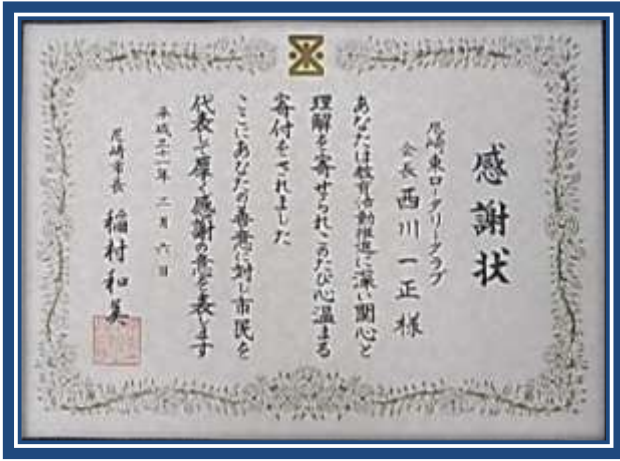 感謝状
尼崎東ロータリークラブ
会長 西川一正 様
あなたは教育活動推進に深い関心と
理解を寄せられこのたび心温まる
寄付をされました
ここにあなたの善意に対し市民を
代表して厚く感謝の意を表します
平成三十一年 二月六日
尼崎市長 稲村和美